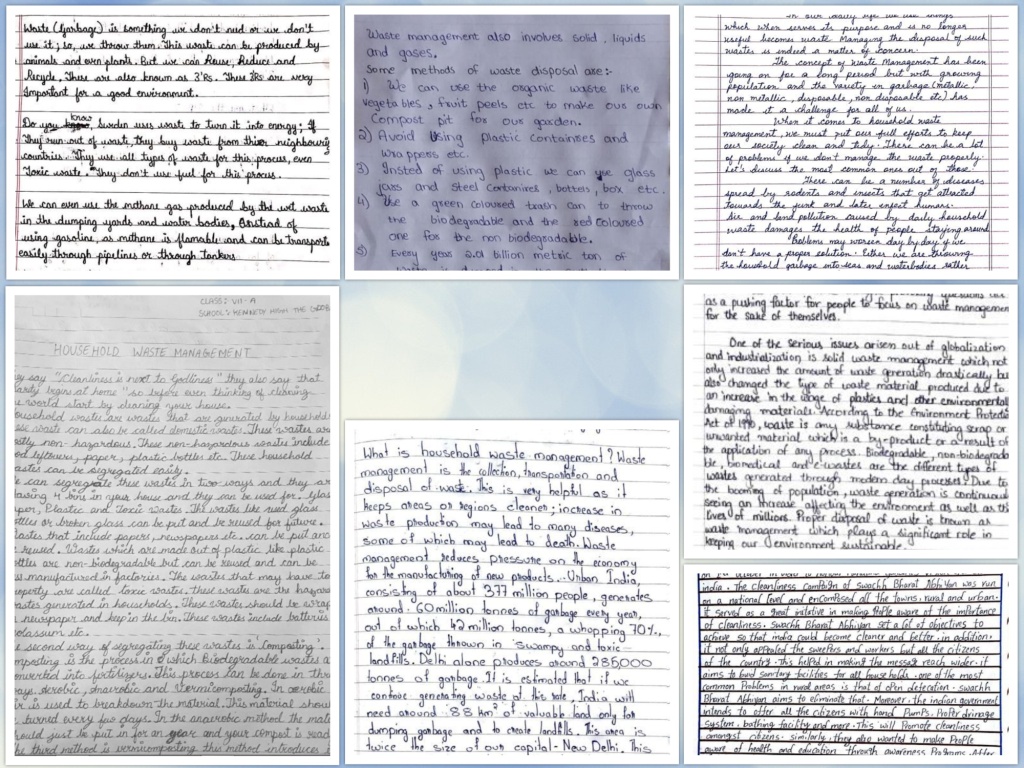 Waste (Garbage) is something we don't need or we don't
use it; so, we throw them. This waste can be produced by
animals and even plants. But we can Reuse, Reduce and
Recycle. These are also known as 3'Rs. These 3Rs are very
important for a good environment.
Do you know, Sweden uses waste to turn it into energy; If
They run out of waste they buy waste from their neighbouring
countries. They use all types of waste for this process, even
Toxic waste. They don't use fuel for this process.
We can even use the methane gas produced by the wet waste
in the dumping yards and water bodies, Instead of
using gasoline, as methane is flamable and can be transports
easily through pipelines or through Tankers.
Waste management also involves solid, liquids
and gases.
Some methods of waste disposal are:-
1) We can use the organic waste like
vegetables, fruit peels etc to make our own
compost pit for our garden.
2) Avoid Using plastic containers and
wrappers etc.
3) Insted of using plastic we can use glass
jars and steel containres, bottels, box etc.
4) Use a green coloured trash can to throw
the biodegradable and the red coloured
one for the non biodegradable.
5) Every year 2.01 billion metric ton of
In our daily life we use things
which when serves its purpose and is no longer
useful becomes waste. Managing the disposal of such
wastes is indeed a matter of concern.
The concept of Waste Management has been
going on for a long period but with growing
population and the variety in garbage (metallic,
non metallic, disposable, non disposable etc) has
made it a challenge for all of us.
When it comes to household waste
management, we must put our full efforts to keep
our society clean and tidy. There can be a lot
of problems if we don't manage the waste properly.
Let's discuss the most common ones out of those.
There can be a number of diseases
spread by rodents and insects that get attracted
towards the junk and later infect humans.
Air and land pollution caused by daily household
waste damages the health of people staying around
Problems may worsen day by day if we
don't have a proper solution. Either we are throwing
the household garbage into seas and waterbodies rather
CLASS: VII-A
SCHOOL: KENNEDY HIGH THE GLOB
HOUSEHOLD WASTE MANAGEMENT
ey say "Cleanliness is next to Godliness" they also say that
arity begins at home" so before even thinking of cleaning
e world start by cleaning your house.
ousehold waste are wastes that are generated by household
se waste can also be called domestic waste. These wastes are
stly non-hazardous. These non-hazardous wastes include
od leftovers, paper, plastic bottles etc. These household
astes can be segregated easily.
e can segregate these wastes in two ways and they ar
having 4 bins in your house and they can be used for. Glas
per, Plastic and Toxic Wastes. The wastes like used glass
ttles or broken glass can be put and be reused for future.
astes that include papers, newspapers etc. can be put and
reused. Wastes which are made out of plastic like plastic
ttles are non-biodegradable but can be reused and can be
manufactured in factories. The wastes that may have to
operty are called toxic wastes. these wastes are the hazard
astes generated in households. These wastes should be wrap
newspaper and keep in the bin. These wastes include batteries
olassum etc.
e second way of segregating these wastes is Composting.
mposting is the process in which Biodegradable wastes a
onverted into fertilizers. This process can be done in thr
ays. Aerobic, Anaerobic and Vermicomposting. In aerobic
r is used to breakdown the material. This material shou
turned every few days. In the anaerobic method the mate
ould just be put in for an year and your compost is read
he third method is vermicomposting this method introduces
What is household waste management? Waste
management is the collection, transportation and
disposal of waste. This is very helpful as it
keeps areas or regions cleaner; increase in
waste production may lead to many diseases,
some of which may lead to death. Waste
management reduces pressure on the economy
for the manufacturing of new products. Urban India,
consisting of about 377 million people, generates
around 60 million tonnes of garbage every year,
out of which 42 million tonnes, a whopping 70%,
of the garbage thrown in swampy and toxic
landfills. Delhi alone produces around 286000
tonnes of garbage. It is estimated that if we
continue generating waste at this rate, India will
need around 88 km² of valuable land only for
dumping garbage and to create landfills. This area is
twice the size of our capital - New Delhi. This
as a pushing factor for people to focus on waste managemen
for the sake of themselves.
One of the serious issues arisen out of globalization
and industrialization is solid waste management which not
only increased the amount of waste generation drastically bu
also changed the type of waste material produced due to
an increase in the usage of plastics and other environmental
damaging materials. According to the Environment Protectio
Act of 1990, waste is any substance constituting scrap or
unwanted material which is a by-product or a result of
the application of any process. Biodegradable, non-biodegrada
ble, biomedical and e-wastes are the different types of
wastes generated through modern day processes. Due to
the booming of population, waste generation is continuous
seeing an increase affecting the environment as well as th
lives of millions. Proper disposal of waste is known as
waste management which plays a significant role in
keeping our environment sustainable.
india. The cleanliness campaign of swachh Bharat Abhiyan was run
on a national level and encomPosed all the towns, rural and urban.
it served as a great initative in making People aware of the importance
of cleanliness. swachh Bharat Abhiyan set a lot of objectives to
achieve so that india could become cleaner and better. in addition.
it not only appealed the sweepers and workers but all the citizens
of the country. This helped in making the message reach wider. it
aims to build sanitary facilities for all house holds. one of the most
common Problems in rural areas is that of open defecation. swachh
Bharat Abhiyan aims to eliminate that. Moreover, the indian government
intends to offer all the citizens with hand PumPs. Proper drainage
system, bathing facility and more. This will Promote cleanliness
amongst citizens. similarly, they also wanted to make People
aware of health and education through awareness Programs. After